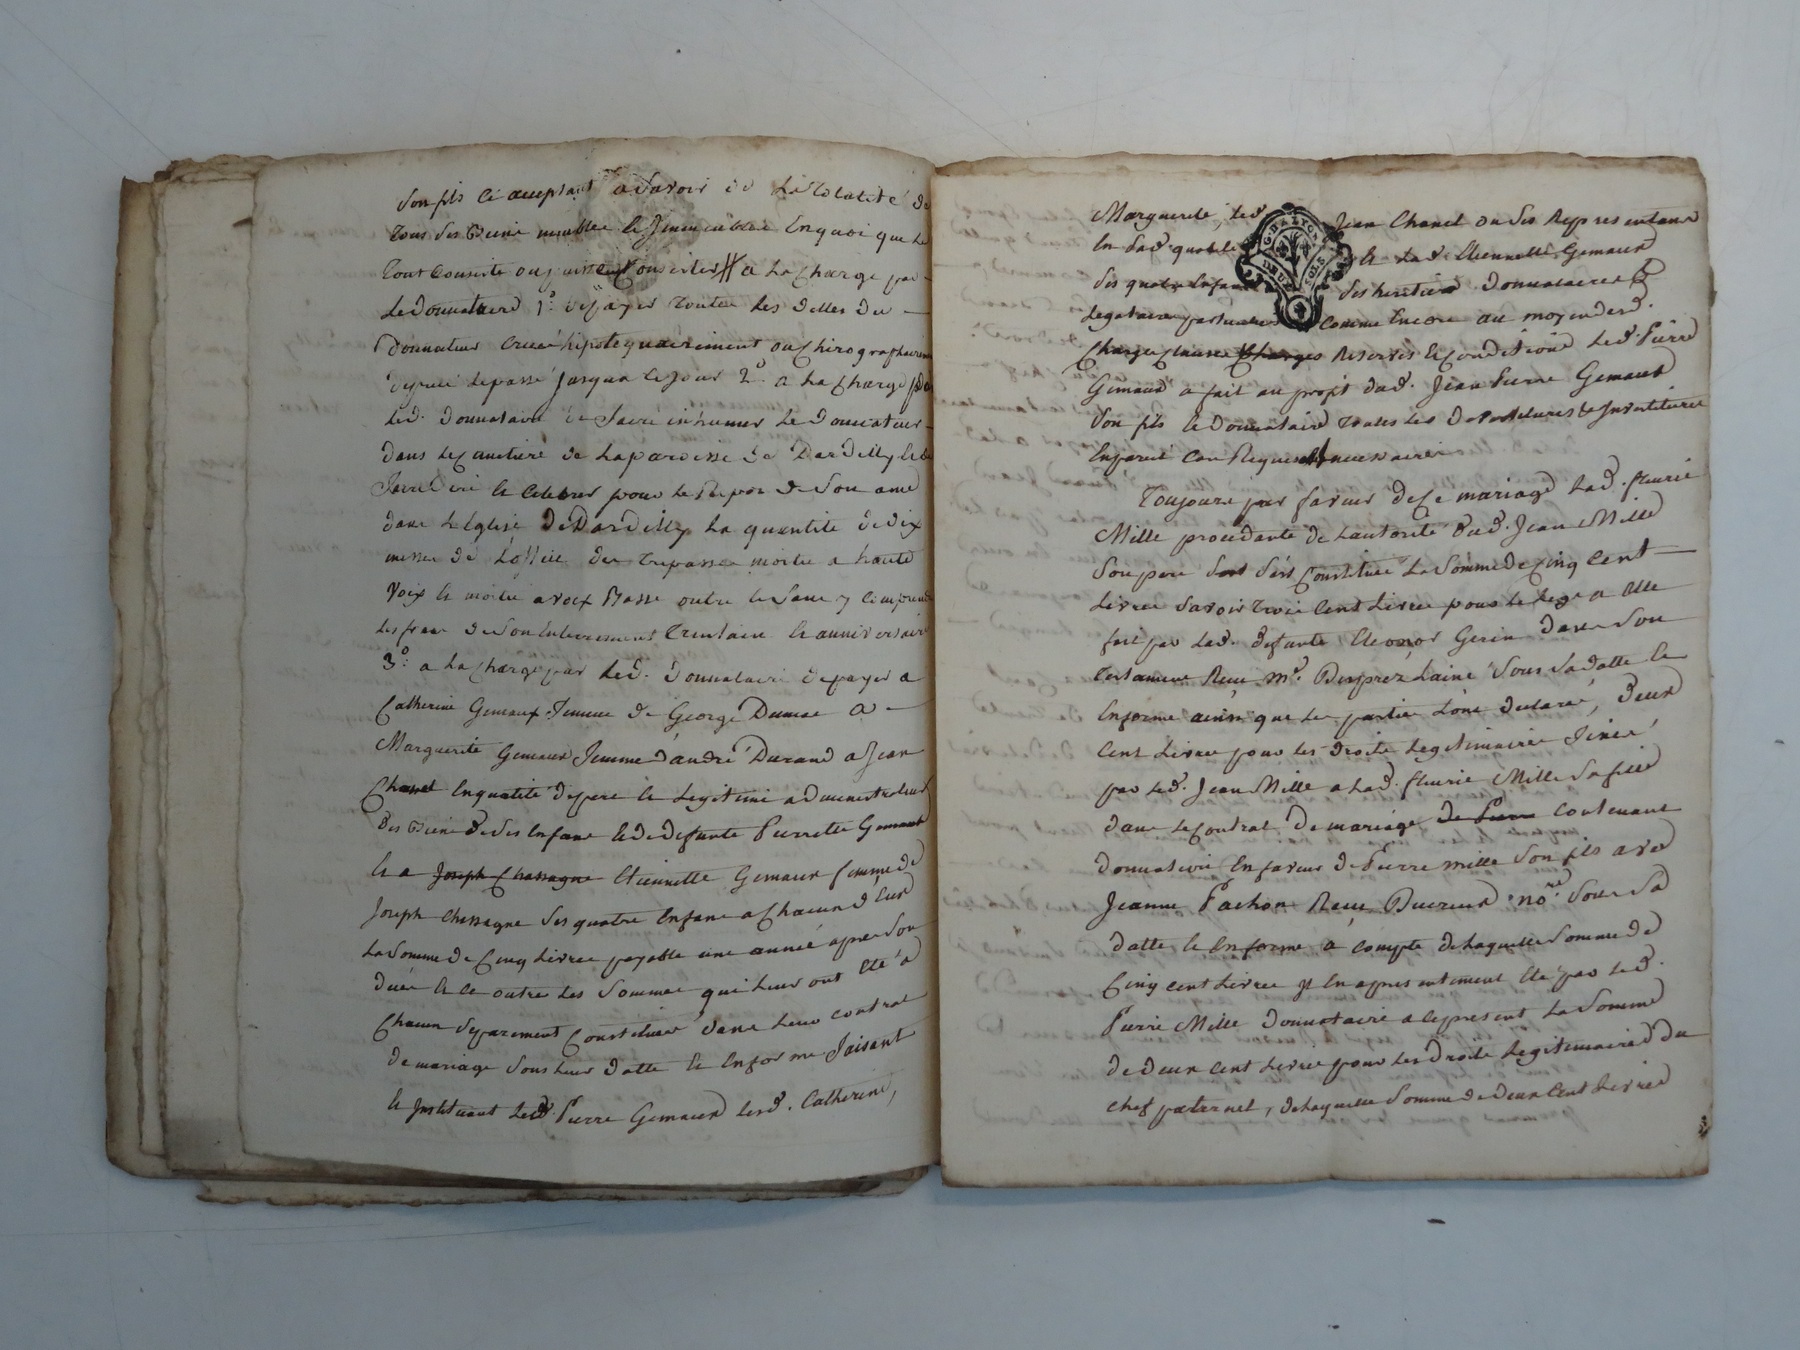 son fils ce acceptant a Savoir de La Totalité de
Tous ses Biens meubles & Immeubles En quoi que Le
Tout Consiste ou puisse Consister # a La Charge par
Le Donnataire 1.° de payer Toutes Les Dettes du
Donnateur Creés hipotequairement ou Chirographairement
depuis Le passé Jusqua ce Jour 2.° a La Charge par
Led. Donnataire de faire inhumer Le Donnateur
dans Le Cimetiere de La paroisse de Dardilly & de
faire dire & Celebrer pour Le Repos de Son ame
dans L'eglise De Dardilly La quantité de dix
messes de L'office des Trepassés moitié a haute
Voix & moitié a voix Basse outre & Sans y Comprendre
Les frais de Son Enterrement Trentaine & anniversaire
3.° a La Charge par Led. Donnataire de payer a
Catherine Gemaux femme de George Dumas a
Marguerite Gemaux femme d'andré Durand a Jean
Chanel En qualité de pere & Legitime administrateur
des Biens De Ses Enfans & de defunte Pierrette Gemaux
& a Joseph Chassagne Etiennette Gemaux femme de
Joseph Chassagne Ses quatre Enfans a Chacun d'Eux
La Somme de Cinq Livres payable une année apres Son
Deces & ce outre Les Sommes qui Leur ont été a
Chacun Separement Constitué dans Leur contrat
de mariage Sous Leur Datte & En forme faisant
& Instituant Led. Pierre Gemaux Lesd. Catherine,
Marguerite, Led. Jean Chanel ou Ses Representans
En Sad. qualité & Lad. Etiennette Gemaux
Ses quatre Enfans Ses heritiers Donnataires &
Legataires particuliers Comme Encore au moyen desd.
Charges Clauses Charges Reserves & Conditions Led. Pierre
Gemaux a fait au profit dud. Jean Pierre Gemaux
Son fils & Donnataire Toutes Les Devestitures & Investitures
En pareil Cas Requises & necessaires
Toujours par faveur de Ce mariage Lad. fleurie
Mille procedante de L'autorité dud. Jean Mille
Son pere S'est Constitué La Somme de Cinq Cent
Livres Savoir Trois Cent Livres pour Le Legs a elle
fait par Lad. defunte Eleonor Gerin dans Son
Testament Reçu M.e Desprez L'aîné Sous Sa datte &
En forme ainsi que Les parties L'ont declaré, deux
Cent Livres pour Les droits Legitimaires
par Led. Jean Mille a Lad. fleurie Mille Sa fille
dans Le Contrat De mariage de Pierre contenant
donnation En faveur de Pierre Mille Son fils avec
Jeanne Pachon Reçu no.re Sous Sa
datte & En forme a compte de Laquelle Somme de
Cinq cent Livres Led.
Pierre Mille Donnataire a ce present La Somme
de Deux Cent Livres pour Les Droits Legitimaires du
chef paternel, de Laquelle Somme de Deux Cent Livres
G. DE LYON
DEUX SOLS